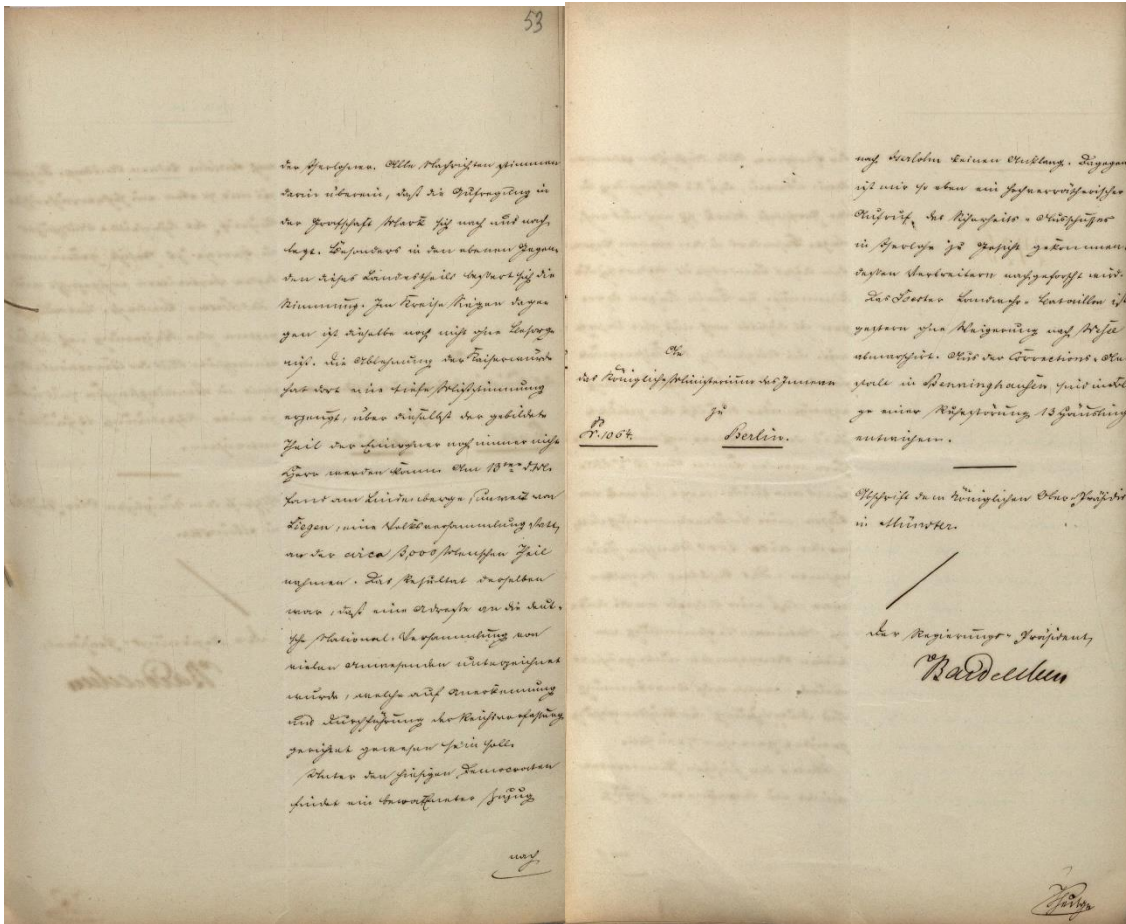 53
der Iserlohner. Alle Nachrichten stimmen
darin überein, daß die Aufregung in
der Grafschaft Mark sich nach und nach
legt. Besonders in den oberen Gegen-
den dieses Landestheils bessert sich die
Stimmung. Im Kreise Siegen dage-
gen ist dieselbe noch nicht ohne Besorg-
niß. Die Ablehnung der Kaiserwürde
hat dort eine tiefe Mißstimmung
erzeugt, über die selbst der gebildete
Theil der Einwohner noch immer nicht
Herr werden kann. Am 13ten d. Mts.
fand am Lindenberge, unweit von
Siegen, eine Volksversammlung statt,
an der circa 3,000 Menschen Theil
nahmen. Das Resultat derselben
war, daß eine Adresse an die deut-
sche National-Versammlung von
vielen Anwesenden unterzeichnet
wurde, welche auf Anerkennung
und Durchführung der Reichsverfassung
gerichtet gewesen sein soll.
Unter den hiesigen Democraten
findet ein bewaffneter Zuzug
nach
nach Iserlohn keinen Anklang. Dagegen
ist mir so eben ein hochverrätherischer
Aufruf des Sicherheits-Ausschusses
in Iserlohn zu Gesicht gekommen,
dessen Verbreitern nachgeforscht wird.
Das Soester Landwehr-Bataillon ist
gestern ohne Weigerung nach Wesel
abmarschirt. Aus der Corrections-An-
stalt in Benninghausen sind in Fol-
ge einer Ruhestörung 13 Häuslinge
entwichen.
An
das Königliche Ministerium des Innern
zu
Pr. 1064. Berlin.
Abschrift dem Königlichen Ober-Präsidio
in Münster.
Der Regierungs-Präsident,
Bardeleben